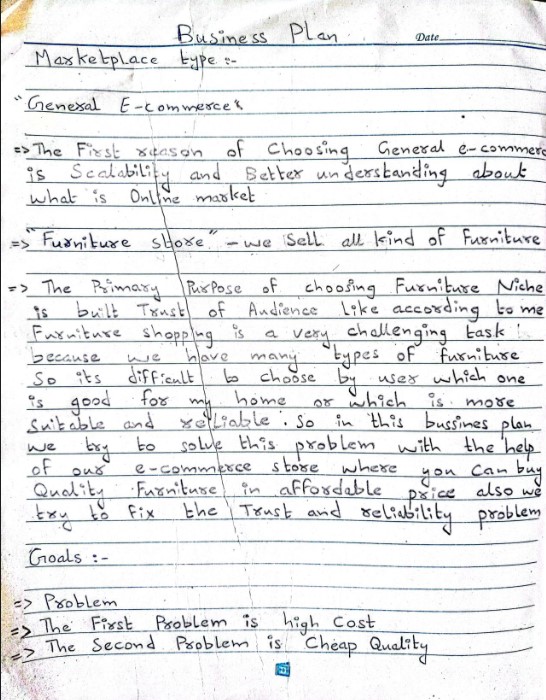 Business Plan
Date
Marketplace type :-
"General E-commerce"
=> The First reason of Choosing General e-commerc
is Scalability and Better understanding about
what is Online market
=> "Furniture store" - we Sell all kind of Furniture
=> The Primary Purpose of choosing Furniture Niche
is built Trust of Audience like according to me
Furniture shopping is a very challenging task
because we have many types of furniture
So its difficult to choose by user which one
is good for my home or which is more
Suitable and reliable. So in this bussines plan
we try to solve this problem with the help
of our e-commerce store where you can buy
Quality Furniture in affordable price also we
try to fix the Trust and reliability problem
Goals :-
=> Problem
=> The First Problem is high Cost
=> The Second Problem is Cheap Quality